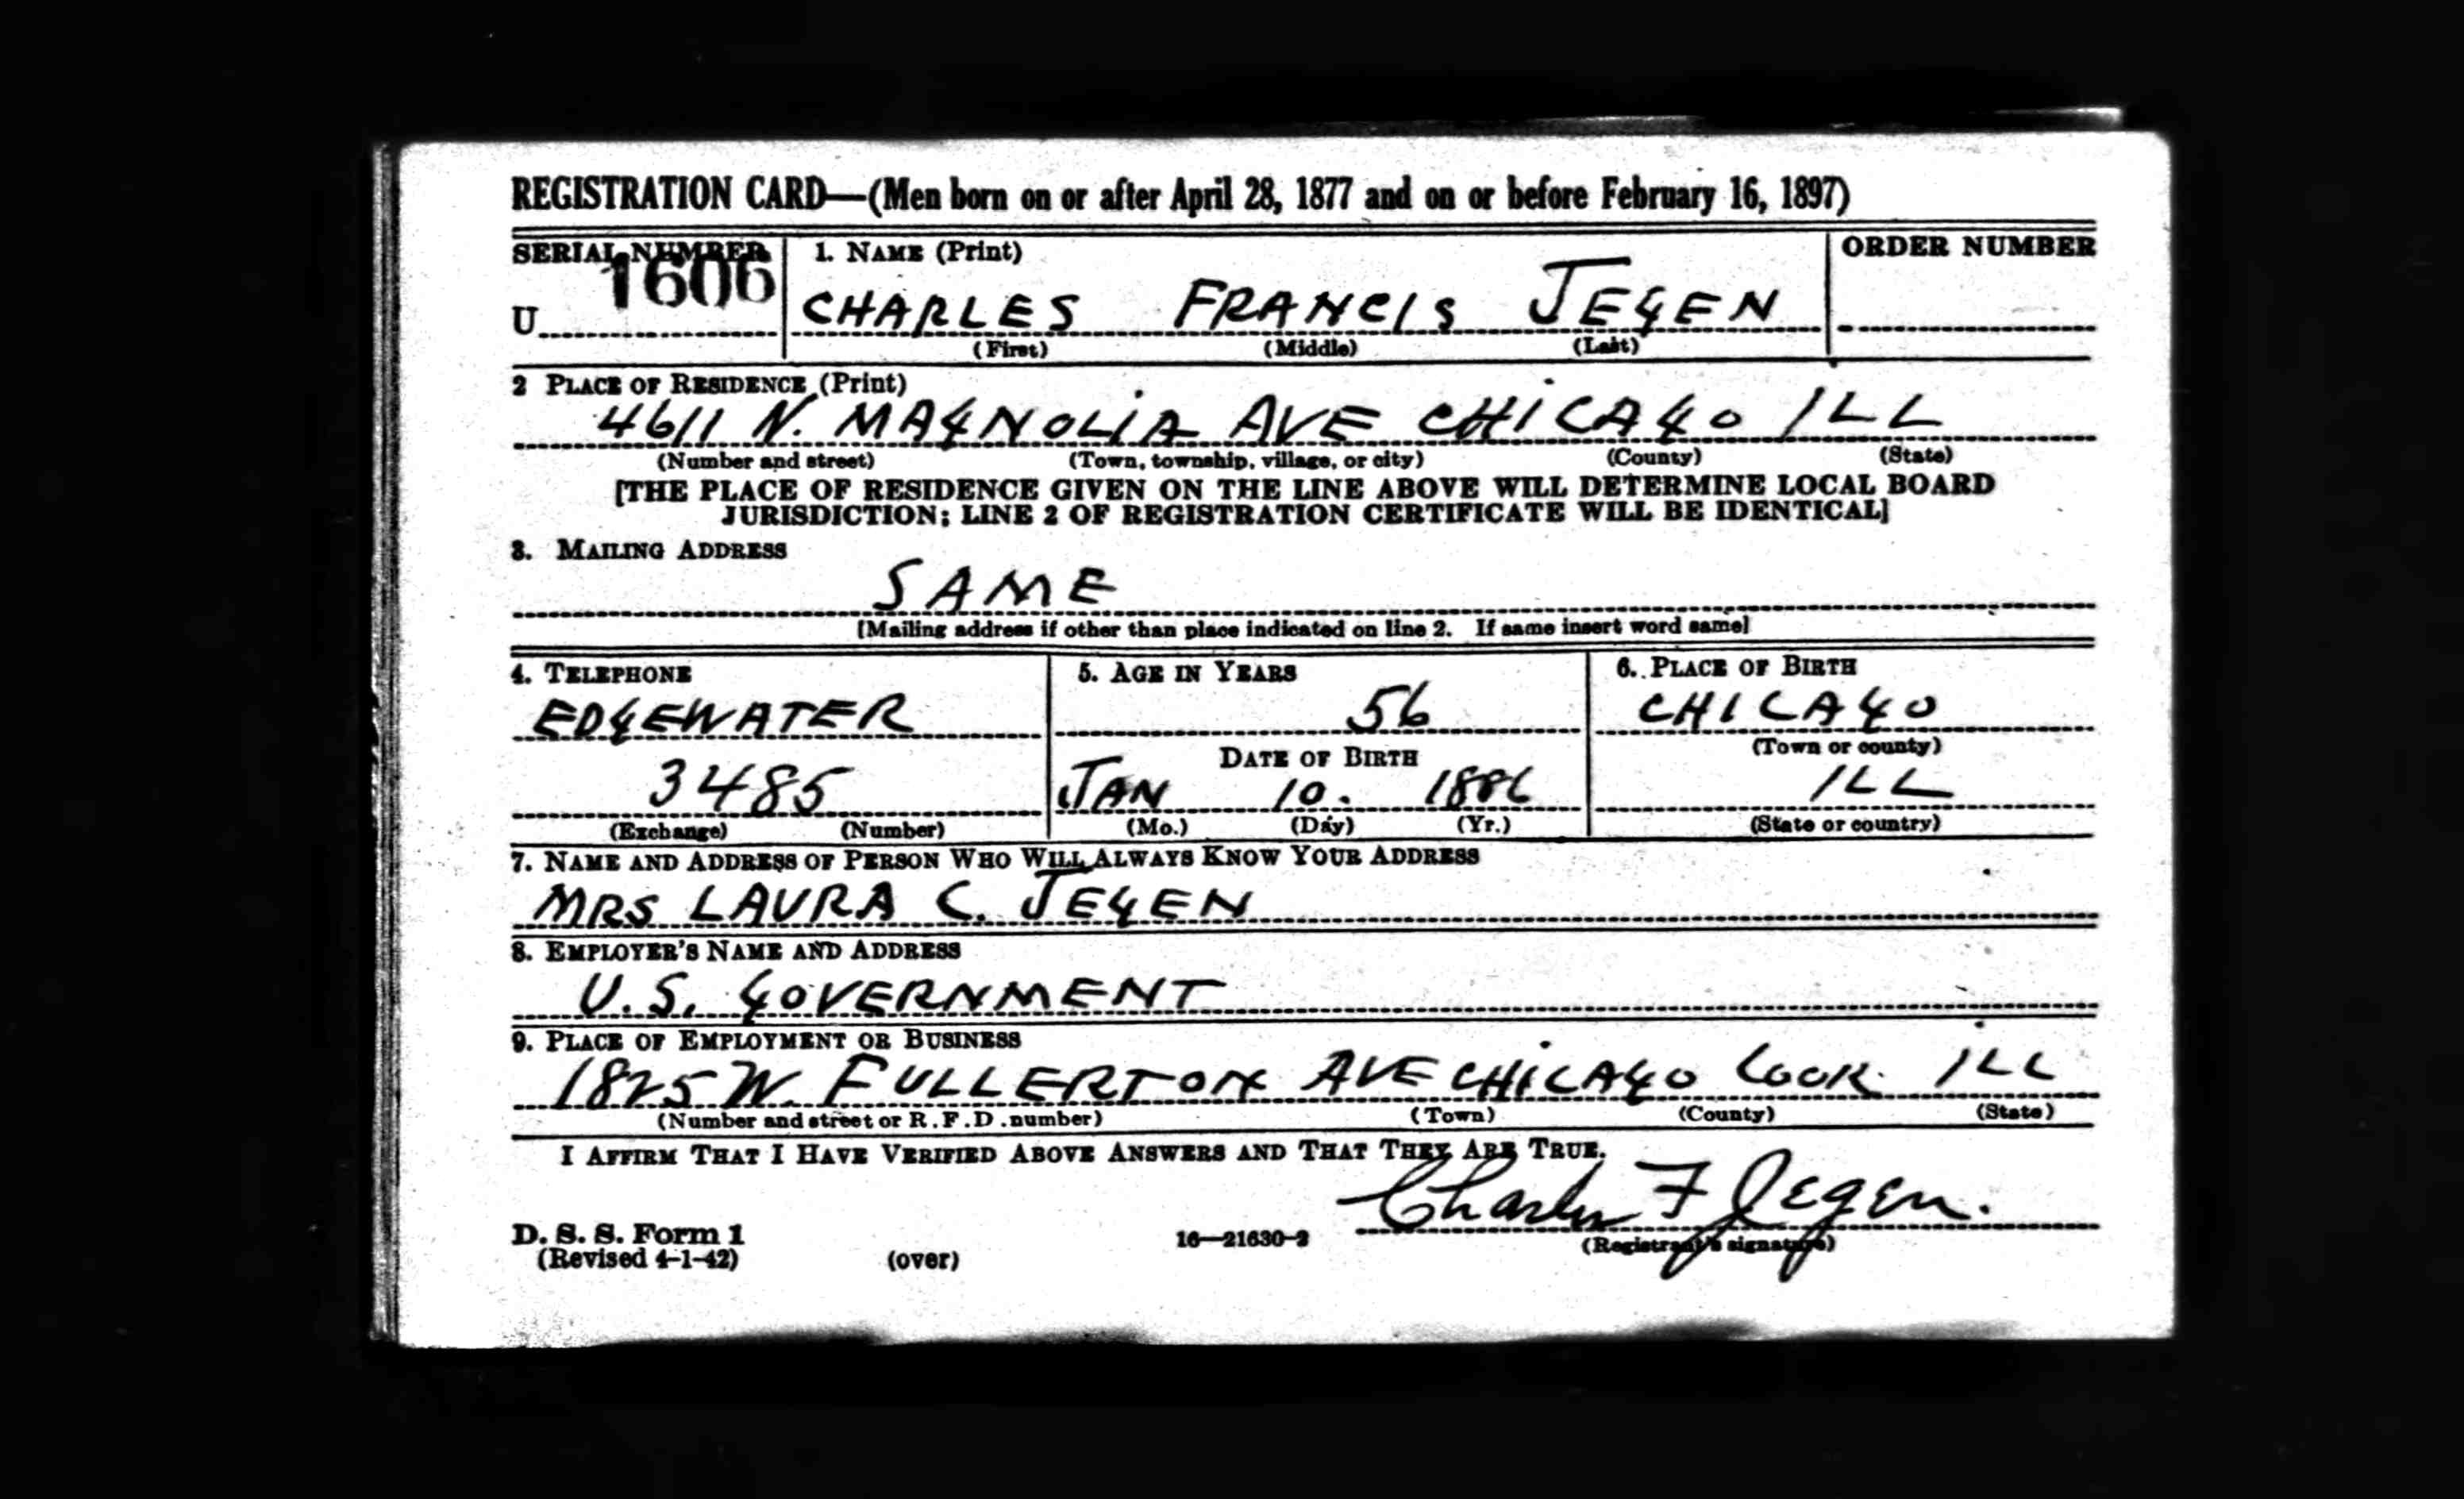 REGISTRATION CARD—(Men born on or after April 28, 1877 and on or before February 16, 1897)
SERIAL NUMBER 1. NAME (Print) ORDER NUMBER
U 1606 CHARLES FRANCIS JEGEN
(First) (Middle) (Last)
2 PLACE OF RESIDENCE (Print)
4611 N. MAGNOLIA AVE CHICAGO ILL
(Number and street) (Town, township, village, or city) (County) (State)
[THE PLACE OF RESIDENCE GIVEN ON THE LINE ABOVE WILL DETERMINE LOCAL BOARD
JURISDICTION; LINE 2 OF REGISTRATION CERTIFICATE WILL BE IDENTICAL]
3. MAILING ADDRESS
SAME
[Mailing address if other than place indicated on line 2. If same insert word same]
4. TELEPHONE 5. AGE IN YEARS 6. PLACE OF BIRTH
EDGEWATER 56 CHICAGO
DATE OF BIRTH (Town or county)
3485 JAN 10. 1886 ILL
(Exchange) (Number) (Mo.) (Day) (Yr.) (State or country)
7. NAME AND ADDRESS OF PERSON WHO WILL ALWAYS KNOW YOUR ADDRESS
MRS LAURA C. JEGEN
8. EMPLOYER'S NAME AND ADDRESS
U.S. GOVERNMENT
9. PLACE OF EMPLOYMENT OR BUSINESS
1825 W. FULLERTON AVE CHICAGO COOK ILL
(Number and street or R.F.D. number) (Town) (County) (State)
I AFFIRM THAT I HAVE VERIFIED ABOVE ANSWERS AND THAT THEY ARE TRUE.
Charles F Jegen.
D. S. S. Form 1 16—21630-2 (Registrant's signature)
(Revised 4-1-42) (over)